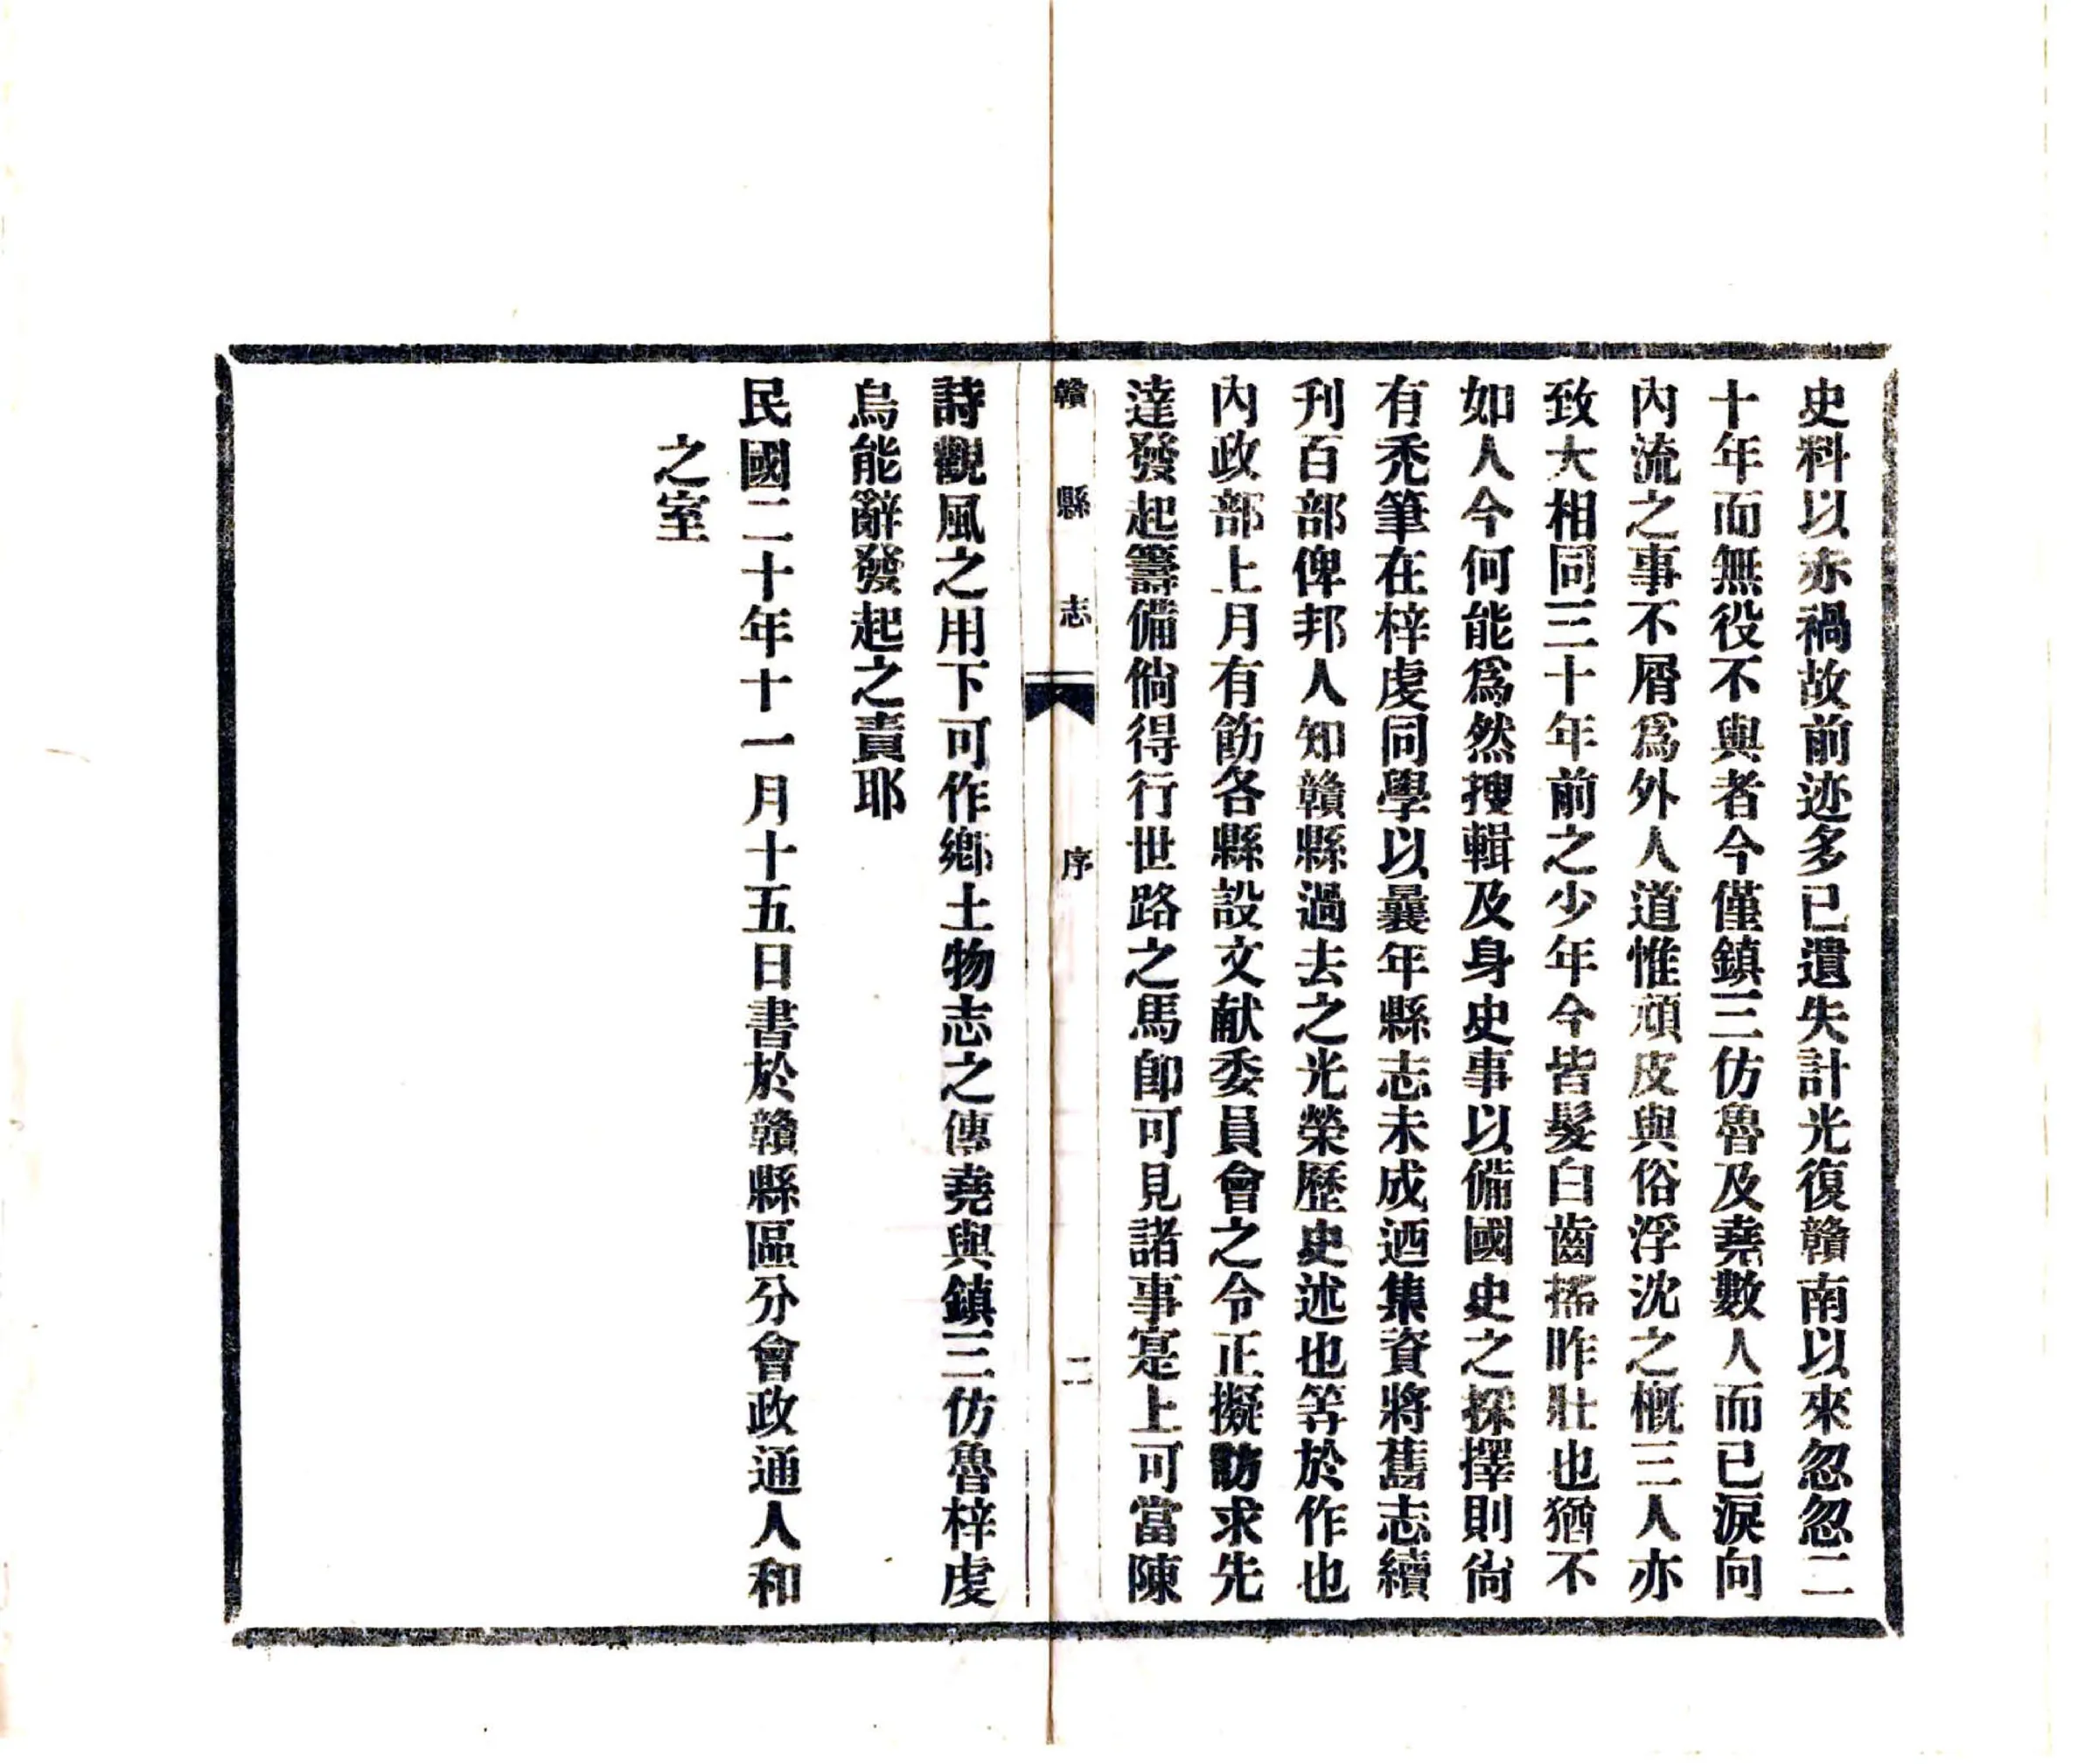 史料以赤禍故前迹多已遺失計光復贛南以來忽忽二
十年而無役不與者今僅鎮三仿魯及堯數人而已淚向
內流之事不屑爲外人道惟頑皮與俗浮沈之槪三人亦
致大相同三十年前之少年今皆髮白齒搖昨壯也猶不
如人今何能爲然搜輯及身史事以備國史之採擇則尙
有禿筆在梓虔同學以曩年縣志未成迺集資將舊志續
刋百部俾邦人知贛縣過去之光榮歷史述也等於作也
內政部上月有飭各縣設文献委員會之令正擬訪求先
達發起籌備倘得行世路之馬卽可見諸事寔上可當陳
贛縣志 序 二
詩觀風之用下可作鄉土物志之傳堯與鎮三仿魯梓虔
烏能辭發起之責耶
民國二十年十一月十五日書於贛縣區分會政通人和
之室